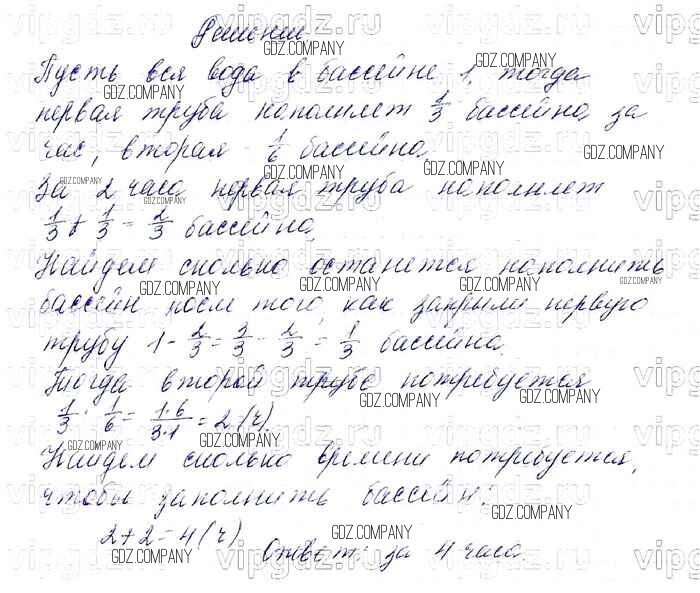 Решение
Пусть вся вода в бассейне 1, тогда
первая труба наполняет 1/3 бассейна за
час, вторая - 1/6 бассейна.
За 2 часа первая труба наполняет
1/3 + 1/3 = 2/3 бассейна.
Найдем сколько останется наполнить
бассейн после того, как закрыли первую
трубу 1 - 2/3 = 3/3 - 2/3 = 1/3 бассейна.
Тогда второй трубе потребуется
1/3 : 1/6 = 1·6/3·1 = 2 (ч).
Найдем сколько времени потребуется,
чтобы заполнить бассейн.
2+2=4 (ч)
Ответ: за 4 часа.
vipgdz.ru
GDZ.COMPANY